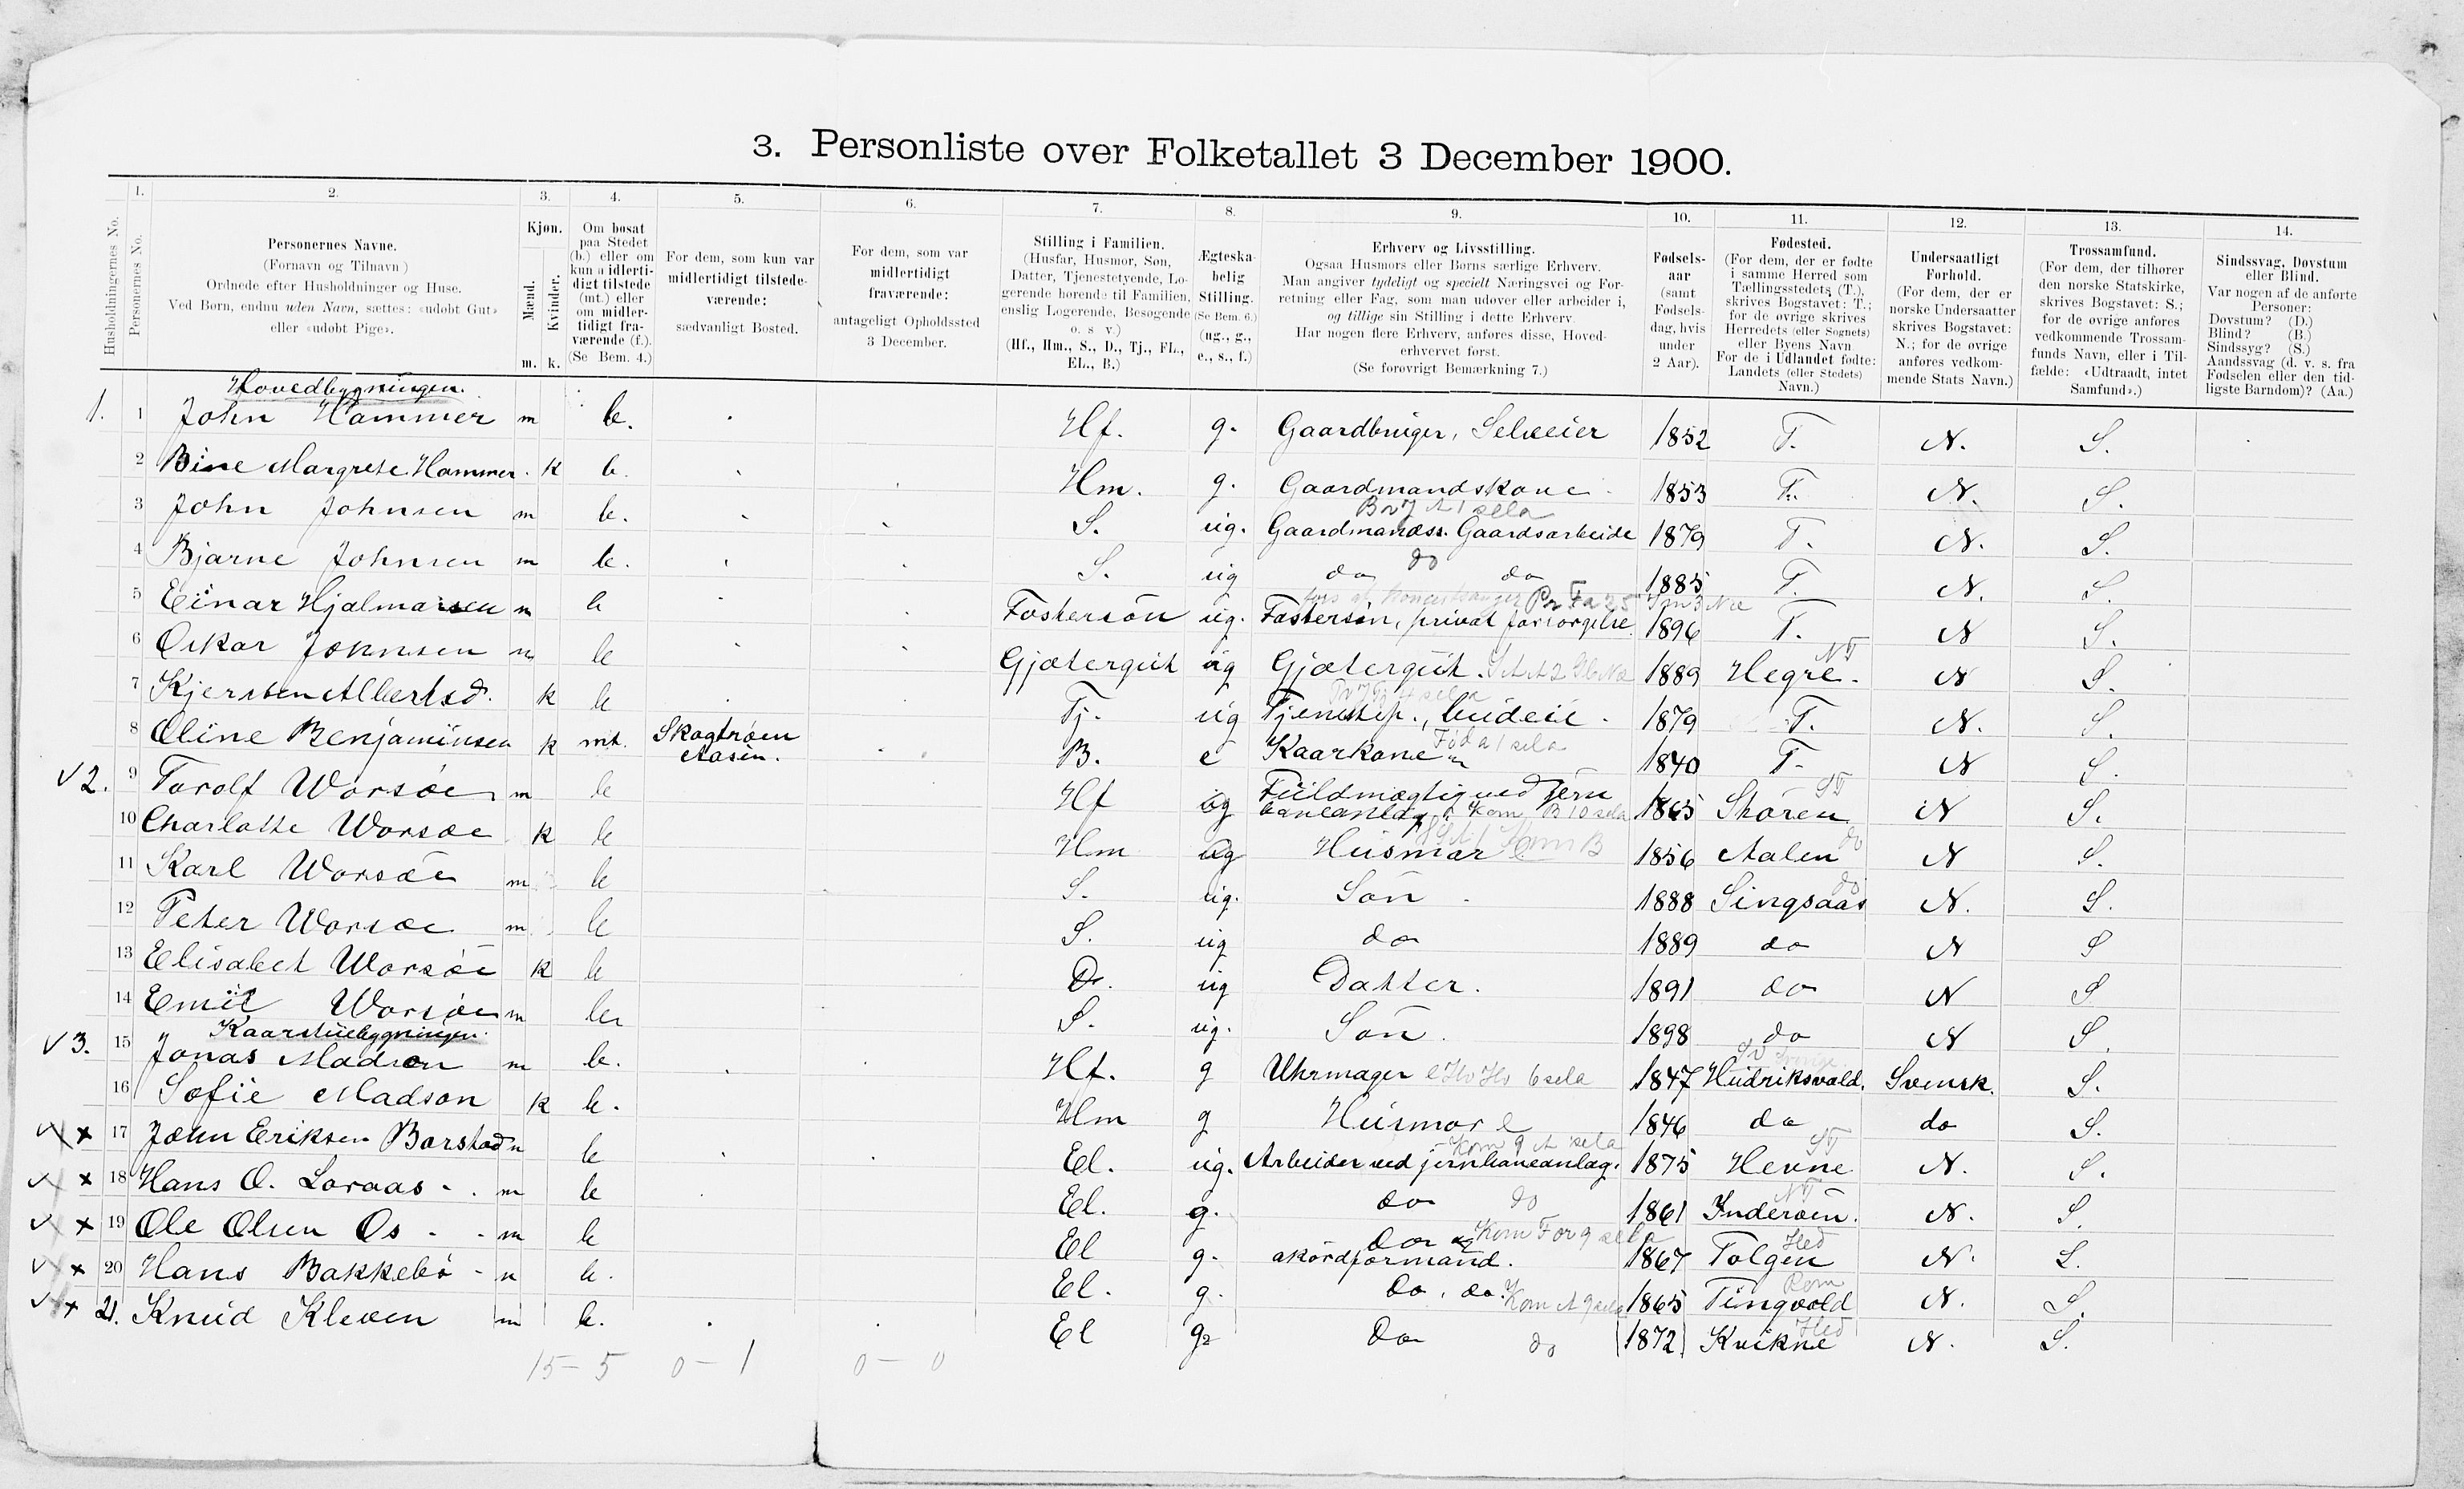 3. Personliste over Folketallet 3 December 1900.
Husholdningernes No.
1. Personernes No.
2. Personernes Navne.
(Fornavn og Tilnavn)
Ordnede efter Husholdninger og Huse.
Ved Børn, endnu uden Navn, sættes: «udøbt Gut»
eller «udøbt Pige».
3. Kjøn.
Mænd. Kvinder.
m. k.
4. Om bosat
paa Stedet
(b.) eller om
kun midlerti-
digt tilstede
(mt.) eller
om midler-
tidigt fra-
værende (f.).
(Se Bem. 4.)
5. For dem, som kun var
midlertidigt tilstede-
værende:
sædvanligt Bosted.
6. For dem, som var
midlertidigt
fraværende:
antageligt Opholdssted
3 December.
7. Stilling i Familien.
(Husfar, Husmor, Søn,
Datter, Tjenestetyende, Lo-
gerende hørende til Familien,
enslig Logerende, Besøgende
o. s v.)
(Hf., Hm., S., D., Tj., FL.,
EL., B.)
8. Ægteska-
belig
Stilling.
(Se Bem. 6.)
(ug., g.,
e., s., f.)
9. Erhverv og Livsstilling.
Ogsaa Husmors eller Børns særlige Erhverv.
Man angiver tydeligt og specielt Næringsvei og For-
retning eller Fag, som man udøver eller arbeider i,
og tillige sin Stilling i dette Erhverv.
Har nogen flere Erhverv, anføres disse, Hoved-
erhvervet først.
(Se forøvrigt Bemærkning 7.)
10. Fødsels-
aar
(samt
Fødsels-
dag, hvis
under
2 Aar).
11. Fødested.
(For dem, der er fødte
i samme Herred som
Tællingsstedets (T.),
skrives Bogstavet: T.;
for de øvrige skrives
Herredets (eller Sognets)
eller Byens Navn.
For de i Udlandet fødte:
Landets (eller Stedets)
Navn.)
12. Undersaatligt
Forhold.
(For dem, der er
norske Undersaatter
skrives Bogstavet:
N.; for de øvrige
anføres vedkom-
mende Stats Navn.)
13. Trossamfund.
(For dem, der tilhører
den norske Statskirke,
skrives Bogstavet: S.;
for de øvrige anføres
vedkommende Trossam-
funds Navn, eller i Til-
fælde: «Udtraadt, intet
Samfund».)
14. Sindssvag, Døvstum
eller Blind.
Var nogen af de anførte
Personer:
Døvstum? (D.)
Blind? (B.)
Sindssyg? (S.)
Aandssvag (d. v. s. fra
Fødselen eller den tid-
ligste Barndom)? (Aa.)
Hovedbygningen.
1. 1 John Hammer m b. Hf. g. Gaardbruger, Selveier 1852 T. N. S.
2 Bine Margrete Hammer. k b. Hm. g. Gaardmandskone 1853 T. N. S.
3 John Johnsen m b. S. ug. Gaardmandss. Gaardsarbeide 1879 T. N. S.
4 Bjarne Johnsen m b. S. ug do do do 1885 T. N. S.
5 Einar Hjalmarsen m b Fostersön ug. Fostersön, privat forsørgelse. 1896 T. N S.
6 Oskar Johnsen m b Gjætergut ug Gjætergut. 1889 Hegre. NT N S.
7 Kjersten Albertsd. k b Tj. ug Tjenestep., budeie. 1879 T. N. S.
8 Oline Benjaminsen k mt. Skogtrøen Aasen. B. e Kaarkone 1840 T. N S.
2. 9 Torolf Worsöe m b Hf ug Fuldmægtig ved Jern
baneanlæg 1865 Stören ST N S.
10 Charlotte Worsøe k b Hm ug Husmor 1856 Aalen do N S.
11 Karl Worsøe m b S. ug. Sön 1888 Singsaas do N. S.
12 Peter Worsøe m b S. ug do 1889 do N S
13 Elisabet Worsöe k b D. ug Datter. 1891 do N S
14 Emil Worsöe m b S. ug. Sön. 1898 do N S.
Kaarstuebygningen.
3. 15 Jonas Madson m b. Hf. g Uhrmager 1847 Hudriksvald. Svensk. S.
16 Sofie Madson k b. Hm g Husmor 1846 do do S.
x 17 John Eriksen Borstad m b El. ug. Arbeider ved jernbaneanlæg. 1875 Hevne ST N. S.
x 18 Hans O. Loraas m b El. g. do do 1861 Inderøen. NT N. S.
x 19 Ole Olsen Os m b El g. do og
akordformand. 1867 Tolgen Hed N. S.
x 20 Hans Bakkebö m b. El. g. do. do. 1865 Tingvold Rom N. S.
x 21. Knud Kleven m b. El g. do do 1872 Kvikne Hed N. S.
15 - 5 0 - 1 0 - 0